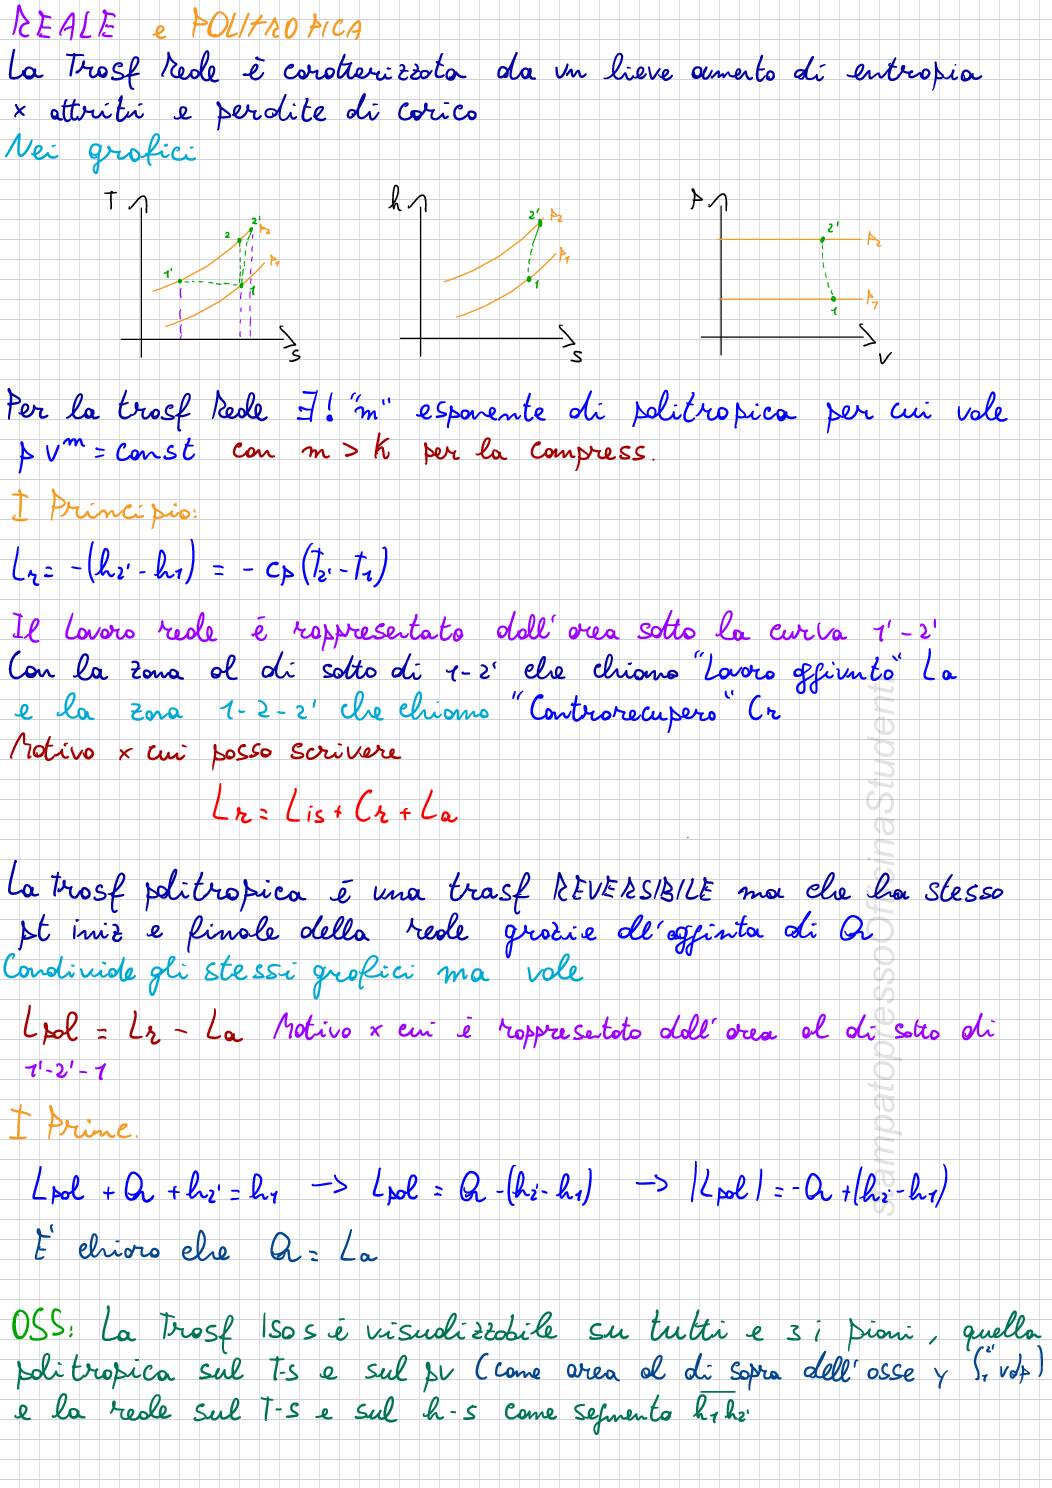 REALE e POLITROPICA
La Trasf Reale è caratterizzata da un lieve aumento di entropia
x attriti e perdite di carico
Nei grafici
T
2'
2
P2
1'
P1
1
S
h
2'
P2
P1
1
S
P
2'
P2
P1
1
V
Per la trasf Reale ∃! "m" esponente di politropica per cui vale
p v^m = const con m > K per la compress.
I Principio:
Lr = -(h2' - h1) = - cp (T2' - T1)
Il Lavoro reale è rappresentato dall'area sotto la curva 1'-2'
Con la zona al di sotto di 1-2' che chiamo "Lavoro aggiunto" La
e la zona 1-2-2' che chiamo "Controrecupero" Cr
Motivo x cui posso scrivere
Lr = Lis + Cr + La
La trasf politropica è una trasf REVERSIBILE ma che ha stesso
pt iniz e finale della reale grazie all'aggiunta di Q
Condivide gli stessi grafici ma vale
Lpol = Lr - La Motivo x cui è rappresentato dall'area al di sotto di
1'-2'-1
I Princ.
Lpol + Q + h2' = h1 -> Lpol = Q - (h2' - h1) -> |Lpol| = -Q + (h2' - h1)
E' chiaro che Q = La
OSS: La Trasf Iso s è visualizzabile su tutti e 3 i piani, quella
politropica sul T-S e sul pv (come area al di sopra dell'asse y ∫1^2' vdp)
e la reale sul T-S e sul h-s come segmento h1h2'
stampatopressoOfficinaStudenti